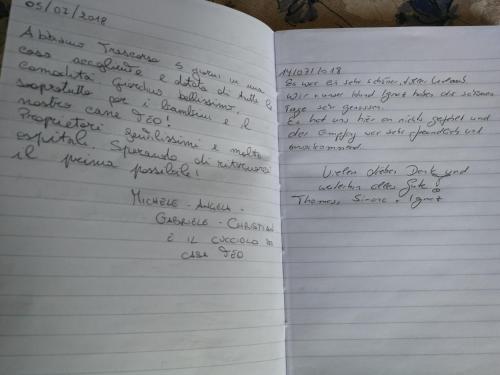 05/07/2018
Abbiamo Trascorso 5 giorni in una
casa accogliente e dotata di tutte le
comodità. Giardino bellissimo,
soprattutto per i bambini e il
nostro cane TEO!
Proprietari gentilissimi e molto
ospitali. Sperando di ritornarci
il prima possibile!
MICHELE - ANGELA -
GABRIELE - CHRISTIAN
E IL CUCCIOLO DI
CASA TEO
14/07/2018
Es war ein sehr schöner, Urlaub
Wir + unser Hund Ignaz haben die schönen
Tage sehr genossen.
Es hat uns hier an nichts gefehlt und
der Empfang war sehr freundlich und
zuvorkommend.
Vielen lieben Dank und
weiterhin alles Gute!
Thomas, Simone + Ignaz